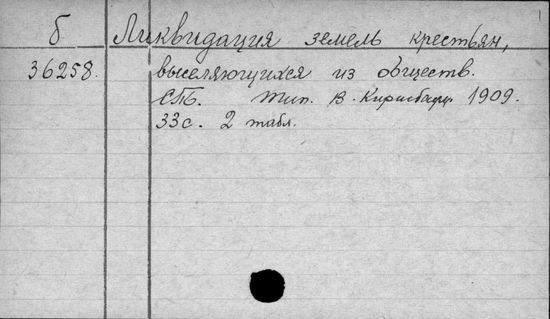 б Ликвидация земель крестьян,
36258. выселяющихся из обществ.
СПб. Тип. В. Киршбаум 1909.
33 с. 2 табл.